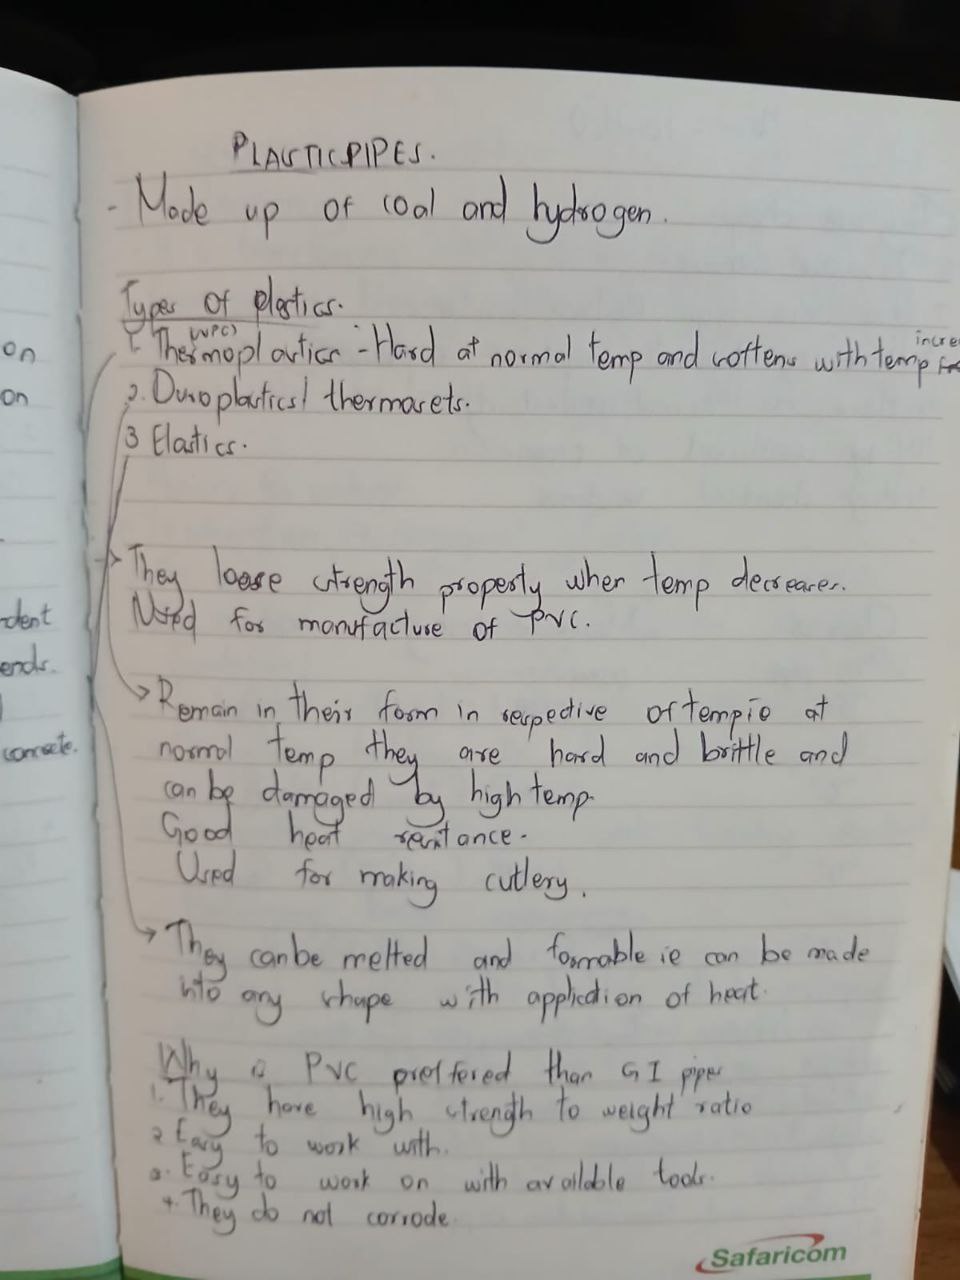 PLASTIC PIPES.
- Made up of coal and hydrogen.
Types of plastics.
1. Thermoplastics - Hard at normal temp and softens with temp
2. Duroplastics/ thermosets.
3 Elastics.
They loose strength property when temp decreases.
Used for manufacture of PVC.
Remain in their form in respective of temp ie at
normal temp they are hard and brittle and
can be damaged by high temp.
Good heat resistance.
Used for making cutlery.
They can be melted and formable ie can be made
into any shape with application of heat.
Why is PVC preffered than GI pipes
1. They have high strength to weight ratio
2 Easy to work with.
3. Easy to work on with available tools.
4. They do not corrode.
on
on
dent
ends.
concrete.
Safaricom